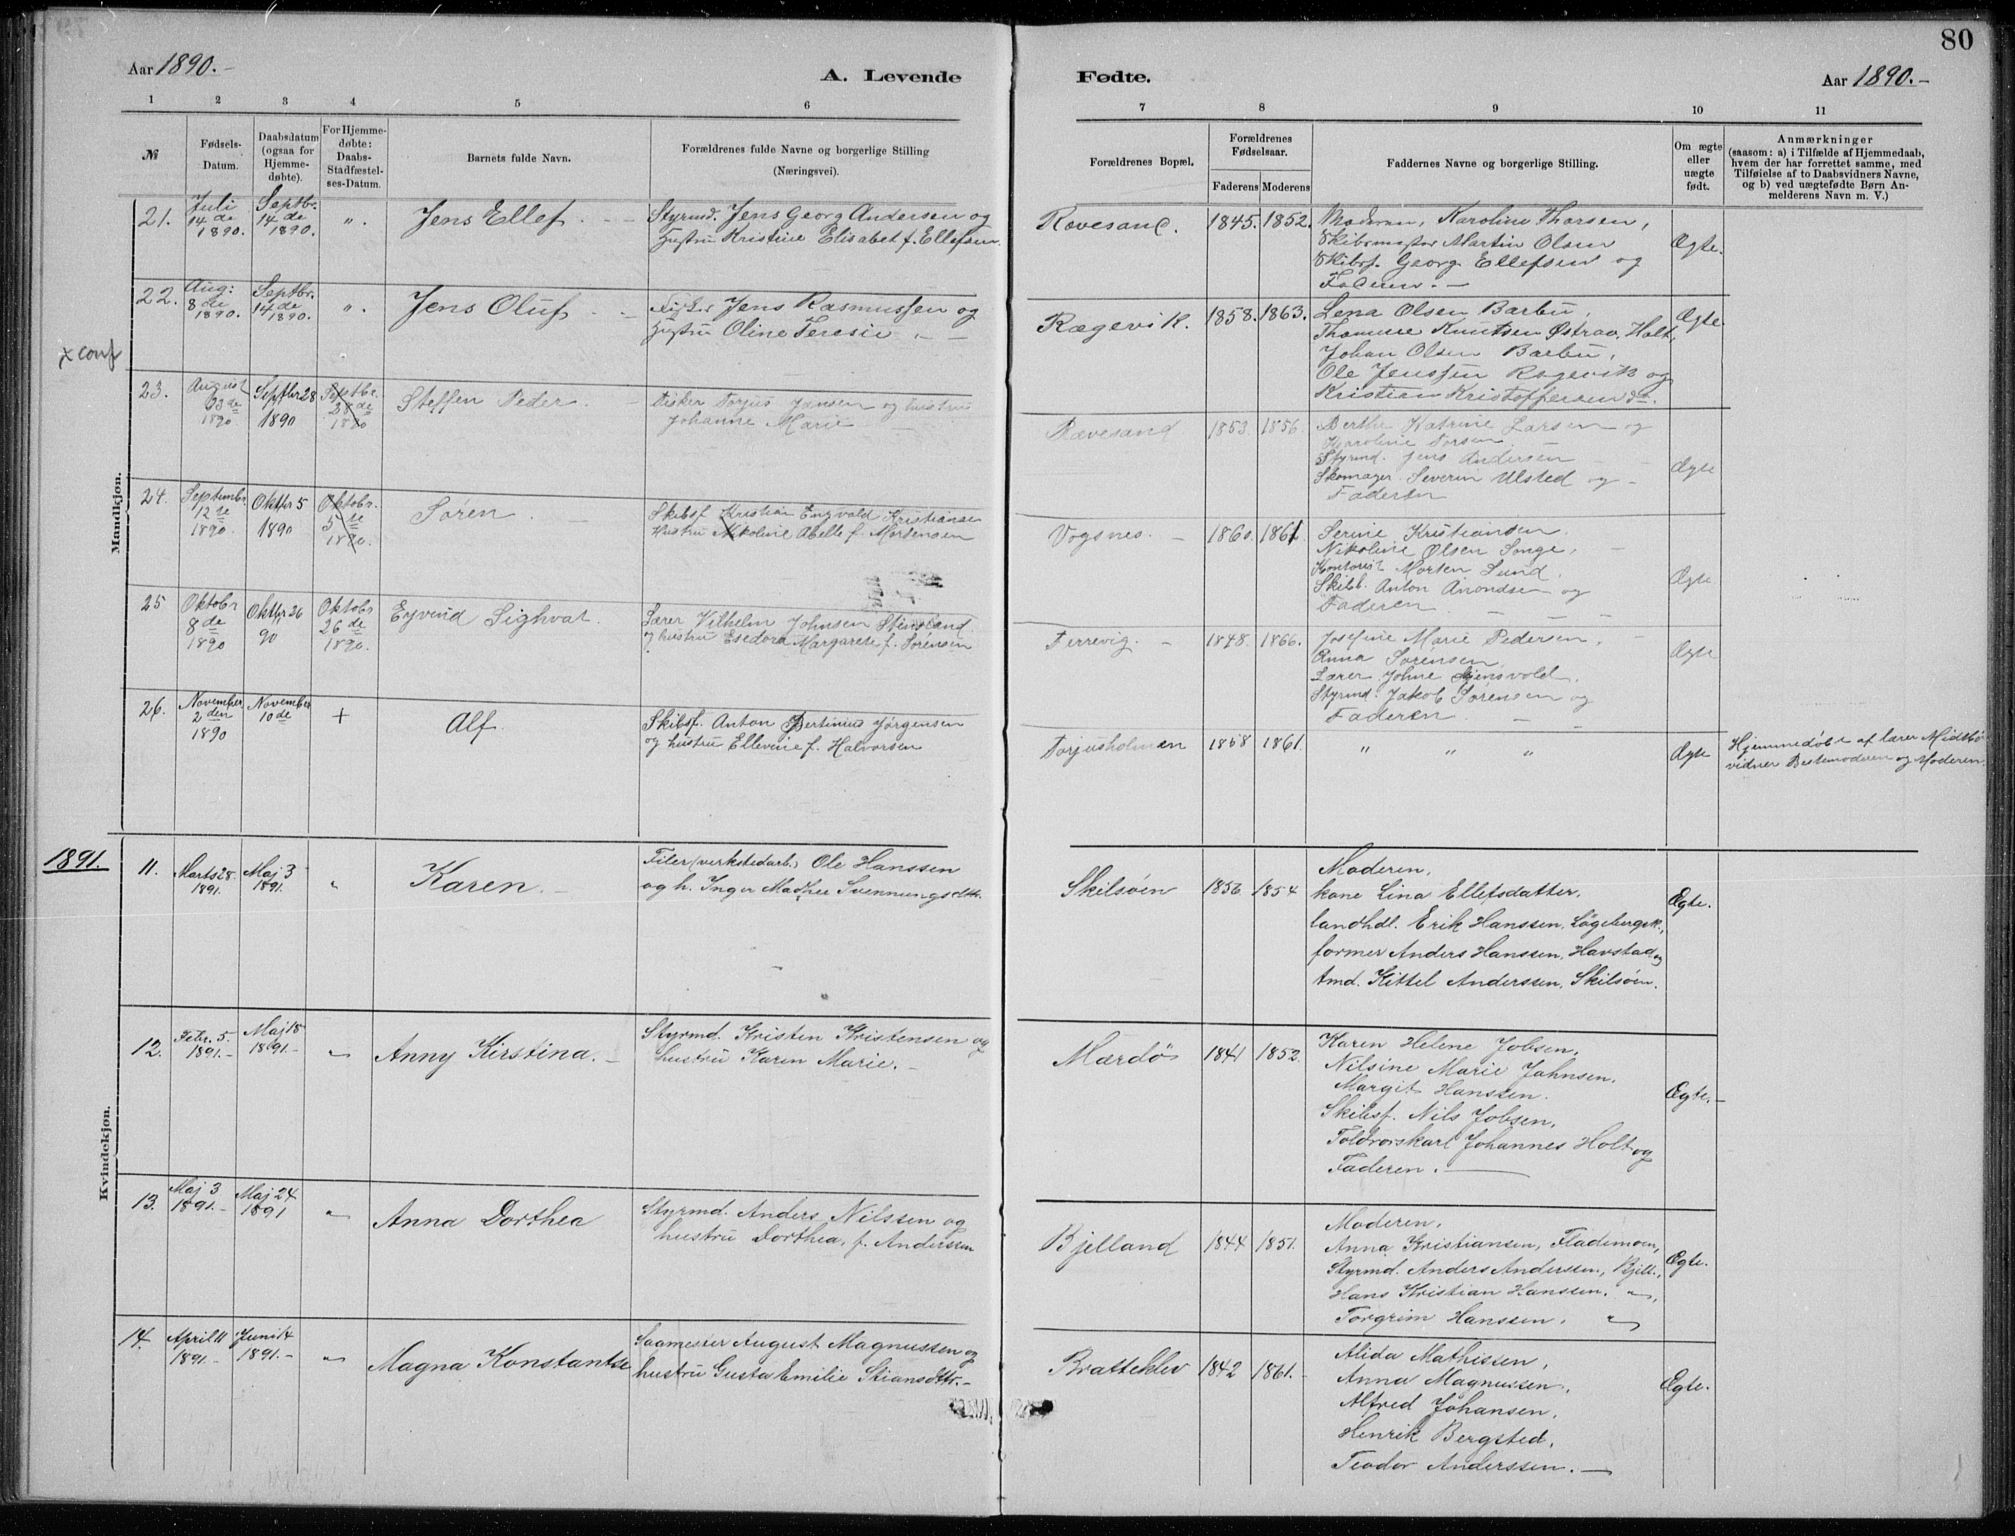 80
Aar 1890.-
A. Levende Fødte.
Aar 1890.-
1 2 3 4 5 6 7 8 9 10 11
№
Fødsels-
Datum.
Daabsdatum
(ogsaa for
Hjemme-
døbte).
For Hjemme-
døbte:
Daabs-
Stadfæstel-
ses-Datum.
Barnets fulde Navn.
Forældrenes fulde Navne og borgerlige Stilling
(Næringsvei).
Forældrenes Bopæl.
Forældrenes
Fødselsaar.
Faderens Moderens
Faddernes Navne og borgerlige Stilling.
Om ægte
eller
uægte
født.
Anmærkninger
(saasom: a) i Tilfælde af Hjemmedaab,
hvem der har forrettet samme, med
Tilføielse af to Daabsvidners Navne,
og b) ved uægtefødte Børn An-
melderens Navn m. V.)
Mandkjøn.
21.
Juli
14 de
1890.
Septbr.
14 de
1890.
".
Jens Ellef
Styrmd. Jens Georg Andersen og
Hustru Kristine Elisabet f. Ellefsen
Rævesand.
1845. 1852.
Moderen, Karoline Thorsen,
Martin Olsen
Skibsf. Georg Ellefsen og
Faderen.-
Ægte.
22.
Aug:
8 de
1890.
Septbr.
14 de
1890.
".
Jens Oluf
Fisker Jens Rasmussen og
Hustru Oline Teresie
Rægevik.
1858. 1863.
Lena Olsen Barbu,
Knutsen Østraa, Holt,
Johan Olsen Barbu,
Ole Jenssen Rægevik og
Kristian Kristoffersen do.
Ægte.
x conf
23.
August
23 de
1890
Septbr 28
1890
Septbr.
28 de
1890
Steffen Peder
Fisker Torjus Jansen og hustru
Johanne Marie
Rævesand
1853 1856
Berthe Katrine Larsen og
Karoline Torsen
Styrmd. Jens Andersen
Skomager Severin Ulsted og
Faderen
Ægte
24.
Septembr.
12 te
1890.
Oktbr 5
1890
Oktobr.
5 te
1890.
Søren
Skibsf Kristian Engvald Kristiansen
Hustru Nikoline Abelle f. Mortensen
Vogsnes.
1860. 1861
Serine Kristiansen.
Nikoline Olsen Songe,
Kontorist Morten Lund.
Skibb. Anton Anondsen og
Faderen
Ægte
25
Oktobr
8 de
1890
Oktbr 26
90
Oktobr
26 de
1890.
Eyvind Sighvat.
Lærer Vilhelm Johnsen Stensland
og hustru Esedora Margarete f. Sørensen
Ferrevig.
1848. 1866.
Josefine Marie Pedersen,
Anna Sørensen,
Lærer Johne
Styrmd. Jakob Sørensen og
Faderen
Ægte
26.
November
2 den
1890
November
10 de
+
Alf
Skibsf. Anton Bertinius Jørgensen
og hustru Ellevine f. Halvorsen
Torjusholmen
1858 1861.
" " "
Ægte
Hjemmedøbt af lærer Midtbø
vidner Bestemoderen og Moderen.
1891.
Kvindekjøn.
11.
Marts 28.
1891.
Maj 3
1891.
"
Karen.
Filer (verkstedarb.) Ole Hanssen
og h. Inger Mathee Svennungsdtr.
Skilsöen
1856 1854
Moderen,
kone Lina Ellefsdatter,
landhdl. Erik Hanssen, Løgebergsk.,
former Anders Hanssen, Havstad og
tmd. Kittel Anderssen, Skilsöen.
Ægte.
12.
Febr. 5.
1891.-
Maj 18
1891.-
"
Anny Kirstina.-
Styrmd. Kristen Kristensen og
hustru Karen Marie.-
Mærdø
1841 1852.
Karen Helene Jobsen,
Nilsine Marie Johnsen.
Margit Hanssen.
Skibsf. Nils Jobsen,
Toldrorskarl Johannes Holt og
Faderen.
Ægte.-
13.
Maj 3
1891.-
Maj 24
1891
"
Anna Dorthea
Styrmd. Anders Nilssen og
hustru Dorthea, f. Anderssen
Bjelland
1844 1851.
Moderen,
Anna Kristiansen, Flademoen,
Styrmd. Anders Anderssen, Bjell.,
Hans Kristian Hanssen. ",
Torgrim Hanssen, "
Ægte.
14.
April 11
1891.-
Juni 14
1891.-
"
Magna Konstantse
Sagmester August Magnussen og
hustru Gusta Emilie Stiansdtr.-
Bratteklev
1842 1861.-
Alida Mathissen,
Anna Magnussen,
Alfred Johansen,
Henrik Bergsted,
Teodor Anderssen.-
Ægte.